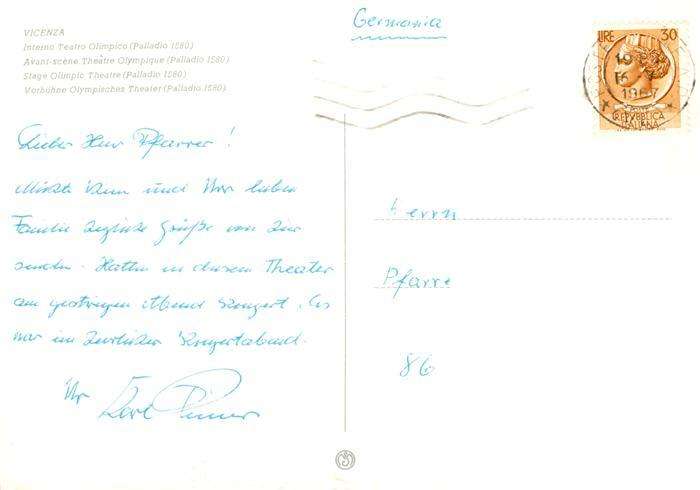 VICENZA
Interno Teatro Olimpico (Palladio 1580)
Avant-scène Theâtre Olympique (Palladio 1580)
Stage Olimpic Theatre (Palladio 1580)
Vorbühne Olympisches Theater (Palladio 1580)
Germania
LIRE 30
REPUBBLICA
ITALIANA
Lieber Herr Pfarrer!
Möchte Ihnen und Ihrer lieben
Familie herzliche Grüße von hier
senden. Hatten in diesem Theater
am gestrigen Abend Konzert. Es
war ein herrlicher Konzertabend.
Ihr
Herrn
Pfarre
86